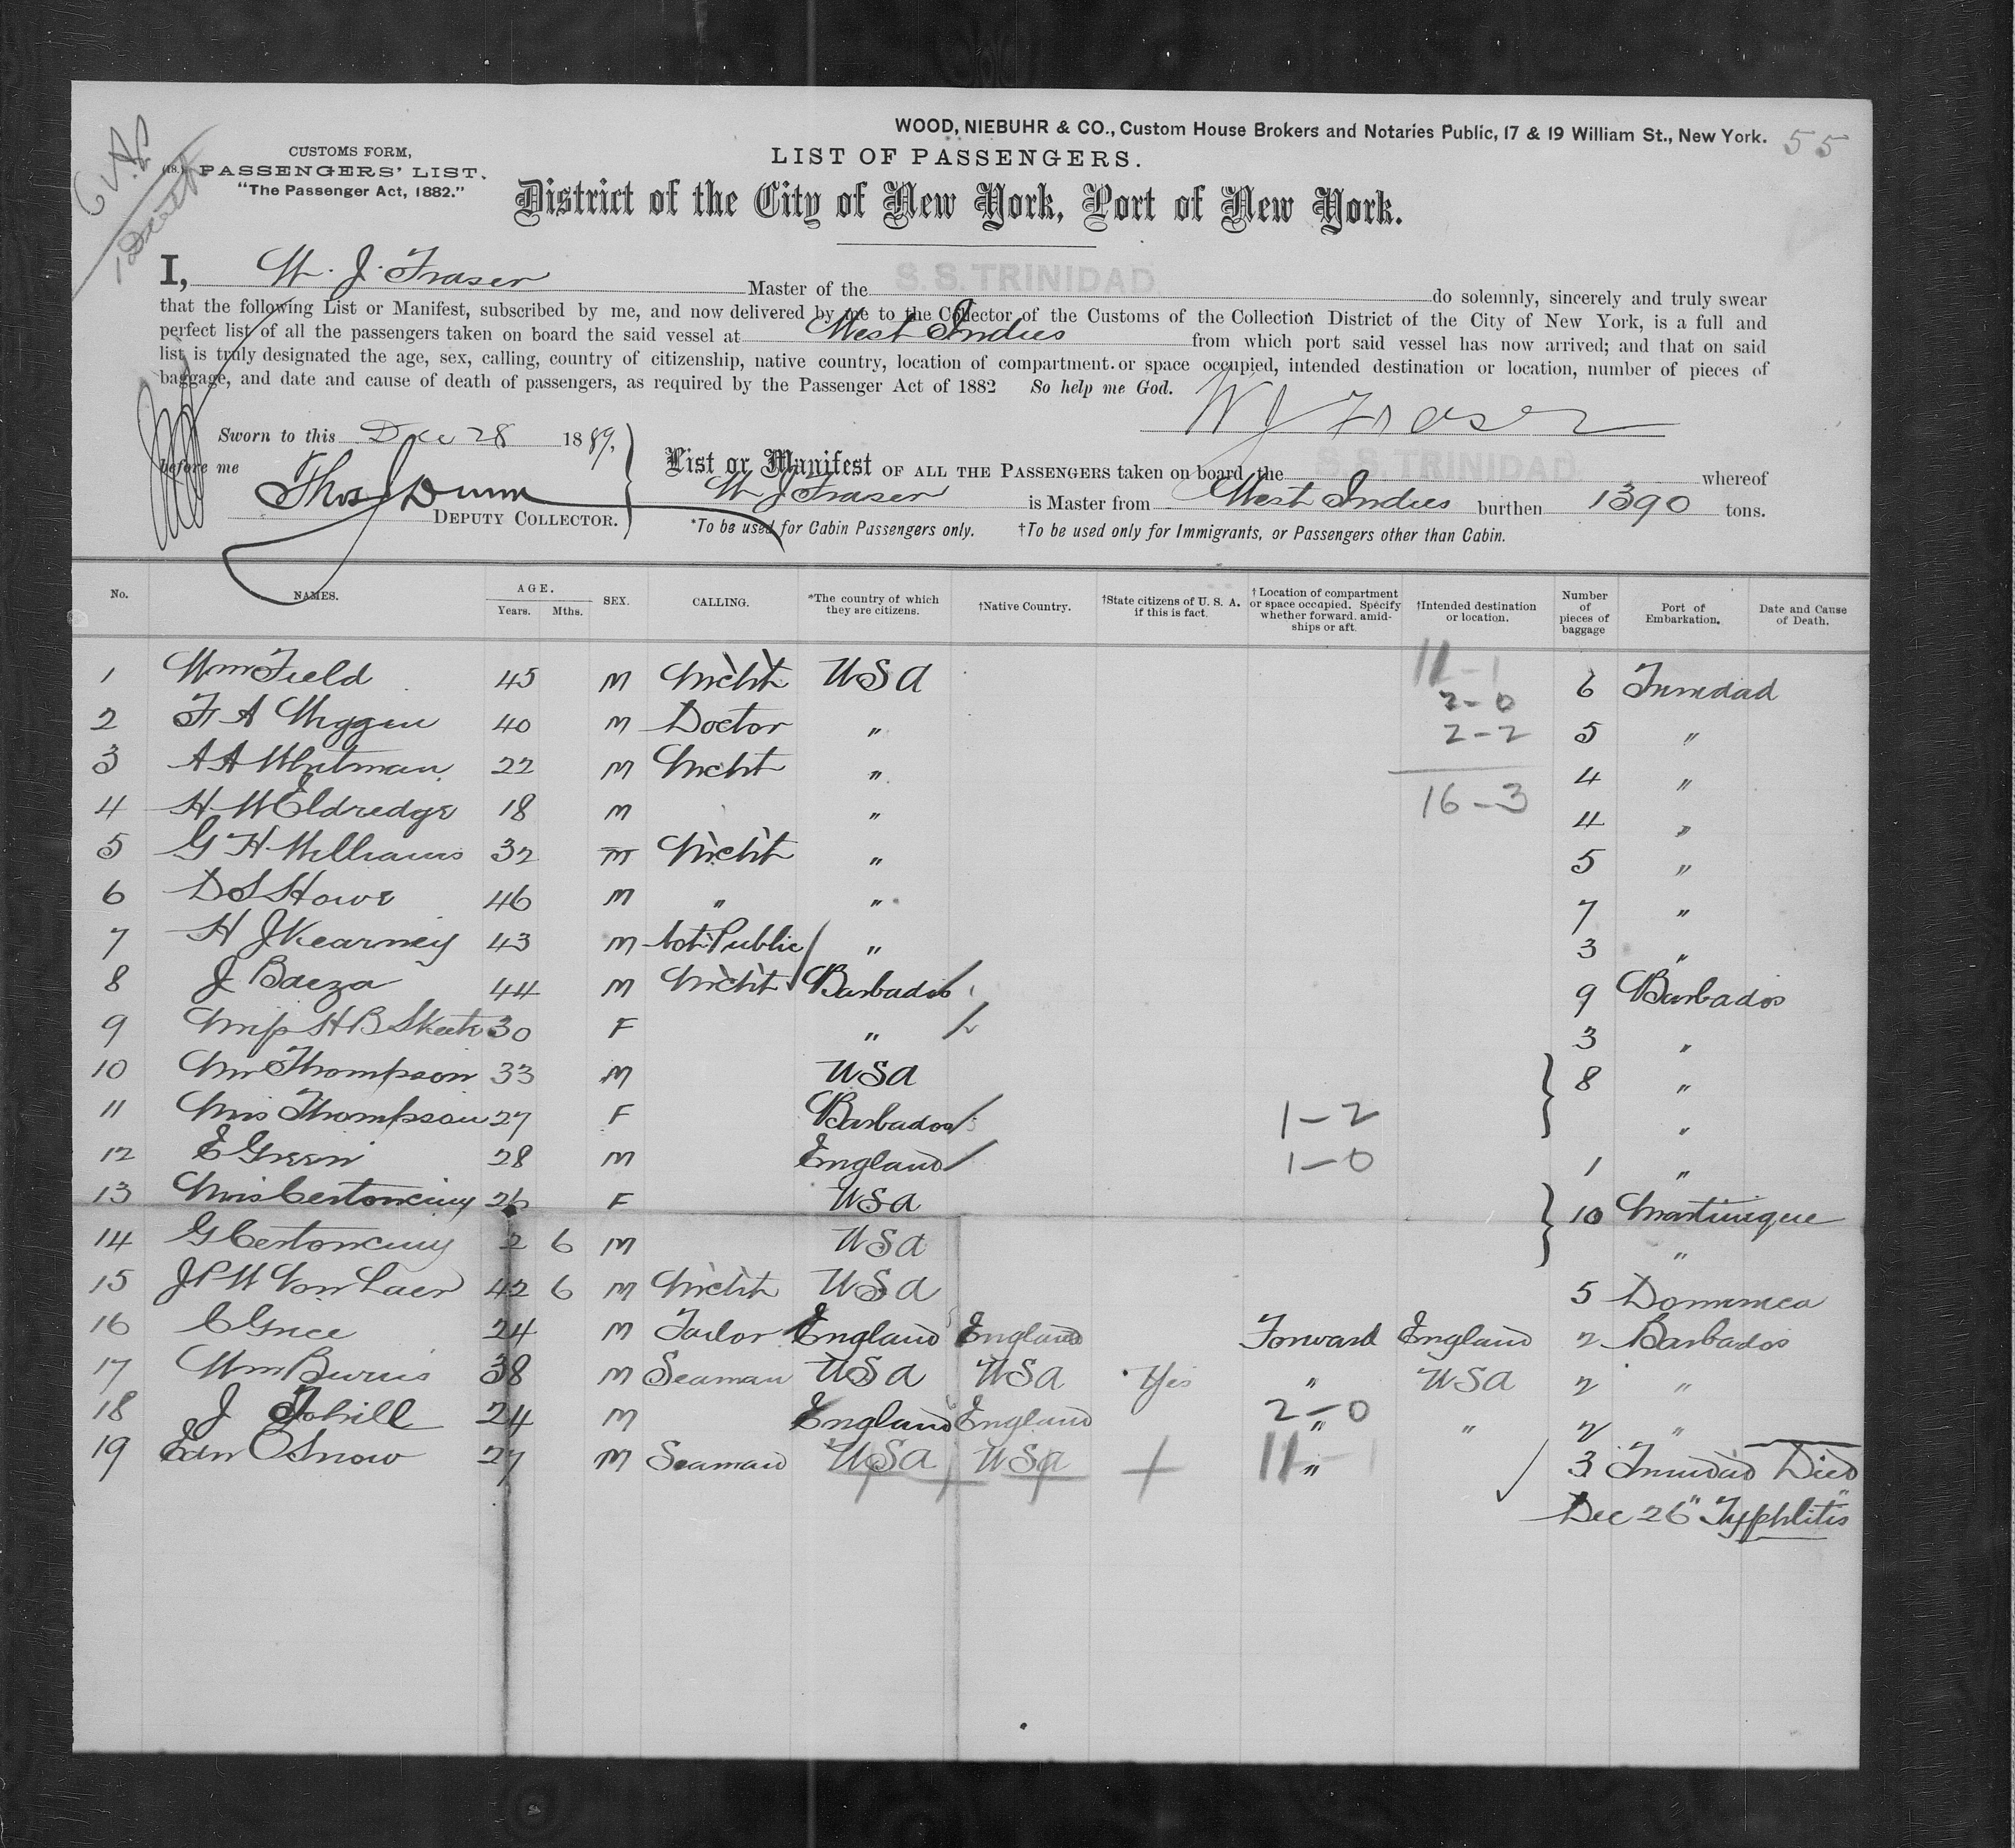 WOOD, NIEBUHR & CO., Custom House Brokers and Notaries Public, 17 & 19 William St., New York. 55
CUSTOMS FORM,
(18.) PASSENGERS' LIST.
"The Passenger Act, 1882."
1 Death
LIST OF PASSENGERS.
District of the City of New York, Port of New York.
I, W. J. Fraser Master of the S.S. TRINIDAD. do solemnly, sincerely and truly swear
that the following List or Manifest, subscribed by me, and now delivered by me to the Collector of the Customs of the Collection District of the City of New York, is a full and
perfect list of all the passengers taken on board the said vessel at West Indies from which port said vessel has now arrived; and that on said
list is truly designated the age, sex, calling, country of citizenship, native country, location of compartment or space occupied, intended destination or location, number of pieces of
baggage, and date and cause of death of passengers, as required by the Passenger Act of 1882 So help me God.
W J Fraser
Sworn to this Dec 28 1889.
before me
Thos J Dunn
DEPUTY COLLECTOR.
List or Manifest OF ALL THE PASSENGERS taken on board the S.S. TRINIDAD whereof
W J Fraser is Master from West Indies burthen 1390 tons.
*To be used for Cabin Passengers only. †To be used only for Immigrants, or Passengers other than Cabin.
No. NAMES. AGE. Years. Mths. SEX. CALLING. *The country of which they are citizens. †Native Country. †State citizens of U. S. A. if this is fact. †Location of compartment or space occupied. Specify whether forward, amidships or aft. †Intended destination or location. Number of pieces of baggage Port of Embarkation. Date and Cause of Death.
11-1
1 Wm Field 45 M Mcht USA 6 Trinidad
2-0
2 F A Wiggin 40 M Doctor " 5 "
2-2
3 A A Whitman 22 M Mcht " 4 "
16-3
4 H W Eldredge 18 M " 4 "
5 G H Williams 32 M Mcht " 5 "
6 D S Howe 46 M " " 7 "
7 H J Kearney 43 M Not. Public " 3 "
8 J Baeza 44 M Mcht Barbados 9 Barbados
9 Miss H B Skeete 30 F " 3 "
10 Mr Thompson 33 M USA 8 "
11 Mrs Thompson 27 F Barbados 1-2 "
12 E Green 28 M England 1-0 1 "
13 Mrs 26 F USA 10 Martinique
14 G 2 6 M USA "
15 J P W Von Laer 42 6 M Mcht USA 5 Dominica
16 C Grice 24 M Tailor England England Forward England 2 Barbados
17 Wm Burris 38 M Seaman USA USA Yes " USA 2 "
2-0
18 J Tohill 24 M England England " " 2 "
19 Edw O Snow 27 M Seaman USA USA 11-1 " 3 Trinidad Died
Dec 26" Typhlitis"